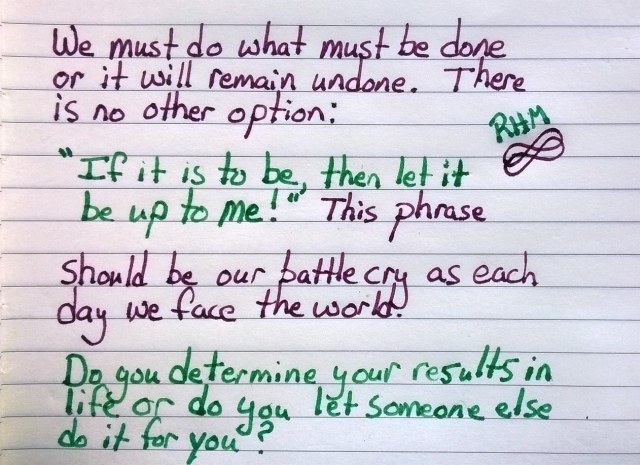 We must do what must be done
or it will remain undone. There
is no other option:
RHM
"If it is to be, then let it
be up to me!" This phrase
should be our battle cry as each
day we face the world.
Do you determine your results in
life or do you let someone else
do it for you?